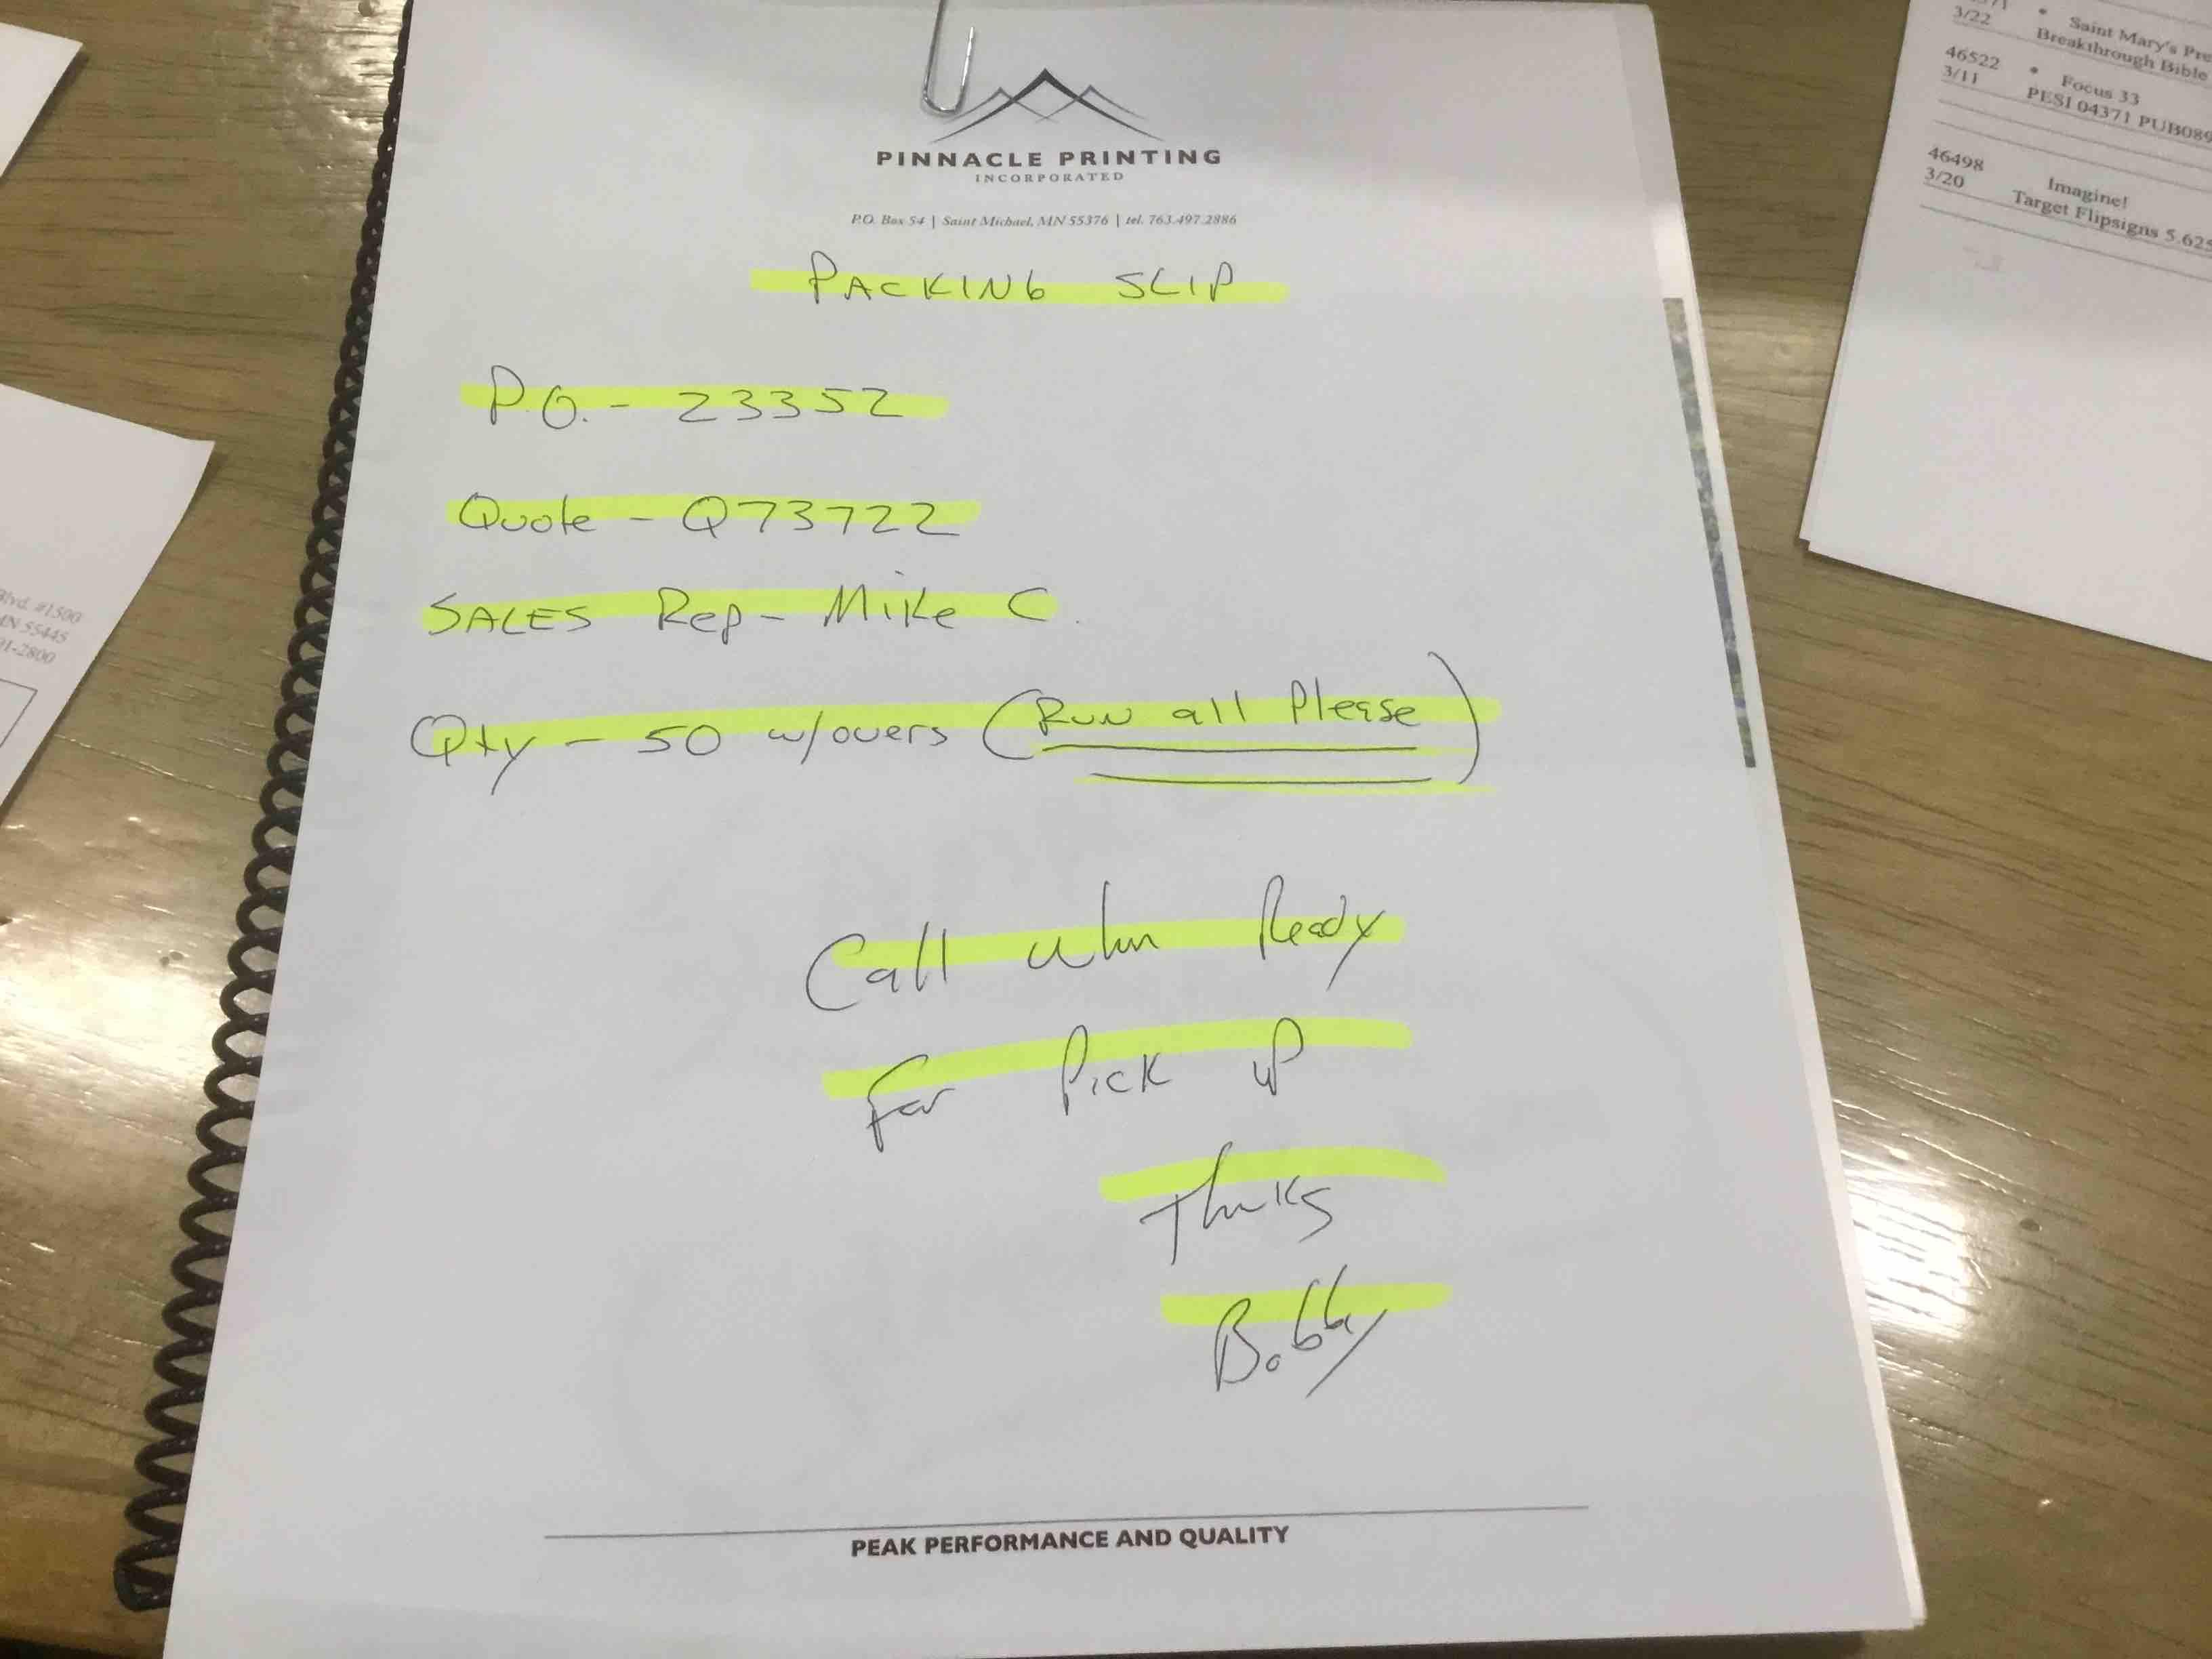 PINNACLE PRINTING
INCORPORATED
P.O. Box 54 | Saint Michael, MN 55376 | tel. 763.497.2886
PACKING SLIP
P.O. - 23352
Quote - Q73722
SALES Rep - Mike C.
Qty - 50 w/overs (Run all Please)
Call when Ready
For Pick up
Thanks
Bobby
PEAK PERFORMANCE AND QUALITY
3/22
• Saint Mary's Pre
Breakthrough Bible
46522
3/11
• Focus 33
PESI 04371 PUB089
46498
3/20
Imagine!
Target Flipsigns 5.625
Blvd. #1500
MN 55445
91-2800